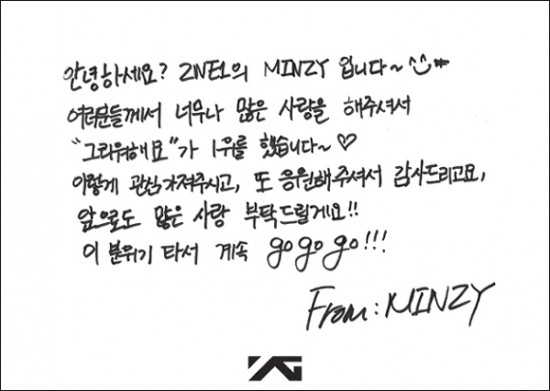 안녕하세요? 2NE1의 MINZY 입니다~
여러분들께서 너무나 많은 사랑을 해주셔서
"그리워해요"가 1위를 했습니다~♡
이렇게 관심가져주시고, 또 응원해주셔서 감사드리고요,
앞으로도 많은 사랑 부탁드릴게요!!
이 분위기 타서 계속 go go go!!!
From: MINZY
YG